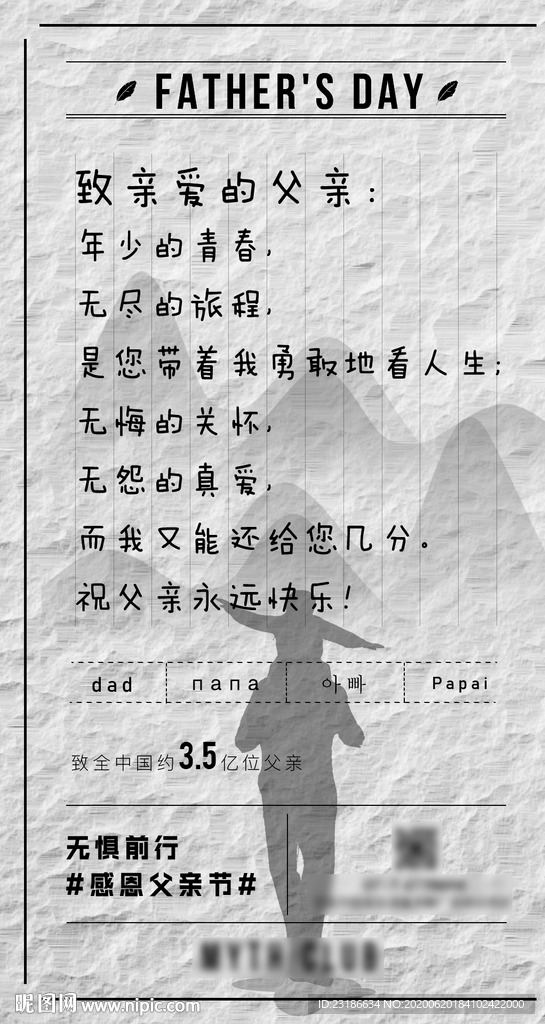 FATHER'S DAY
致亲爱的父亲:
年少的青春,
无尽的旅程,
是您带着我勇敢地看人生;
无悔的关怀,
无怨的真爱,
而我又能还给您几分。
祝父亲永远快乐!
dad папа 아빠 Papai
致全中国约3.5亿位父亲
无惧前行
#感恩父亲节#
MYTH CLUB
昵图网 www.nipic.com
ID:23186634 NO:20200620184102422000